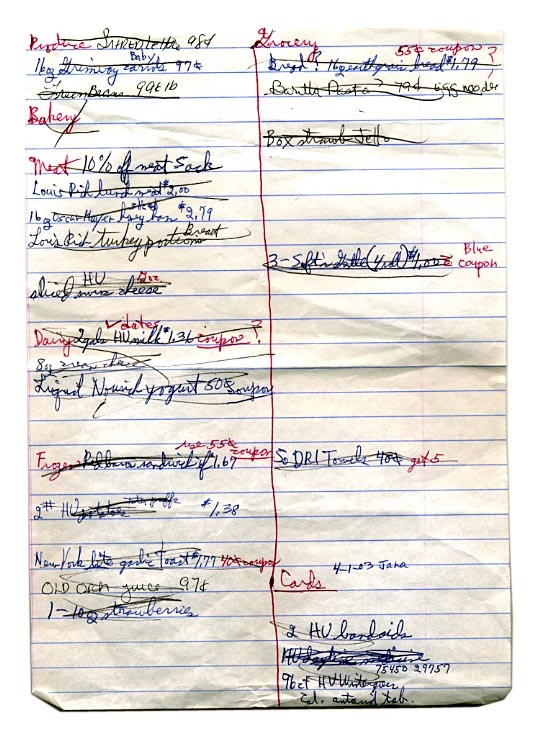 Produce 98¢
Baby
16oz Trimway carrots 97¢
Green Beans 99¢ lb
Bakery
Meat 10% off meat
Louis Rich lunch meat $2.00
sliced
16oz Oscar Mayer ham $2.79
Breast
Louis Rich turkey portions
HV 8oz
sliced swiss cheese
✓dates
Dairy 2gals HV milk $1.36 coupon?
8oz cream cheese
Liquid yogurt 50¢ coupon
use 55¢
coupon
Frozen Red baron sandwich if 1.67
2# HV potatoes $1.38
New York lite garlic Toast $1.77 40¢ coupon
OLD Orch juice 97¢
1-10oz strawberries
Grocery
55¢ coupon ?
Bread? 16oz bread $1.79
Barilla Pasta? 79¢ egg noodle
Box strawb Jello
3-Soft'n Gentle (4 roll) $1.00
Blue
coupon
So DRI Towels 40¢ get 5
4-1-03 Jana
Cards
2 HV bandaids
HV
75450 29757
96ct HV
Cal. antacid tab.